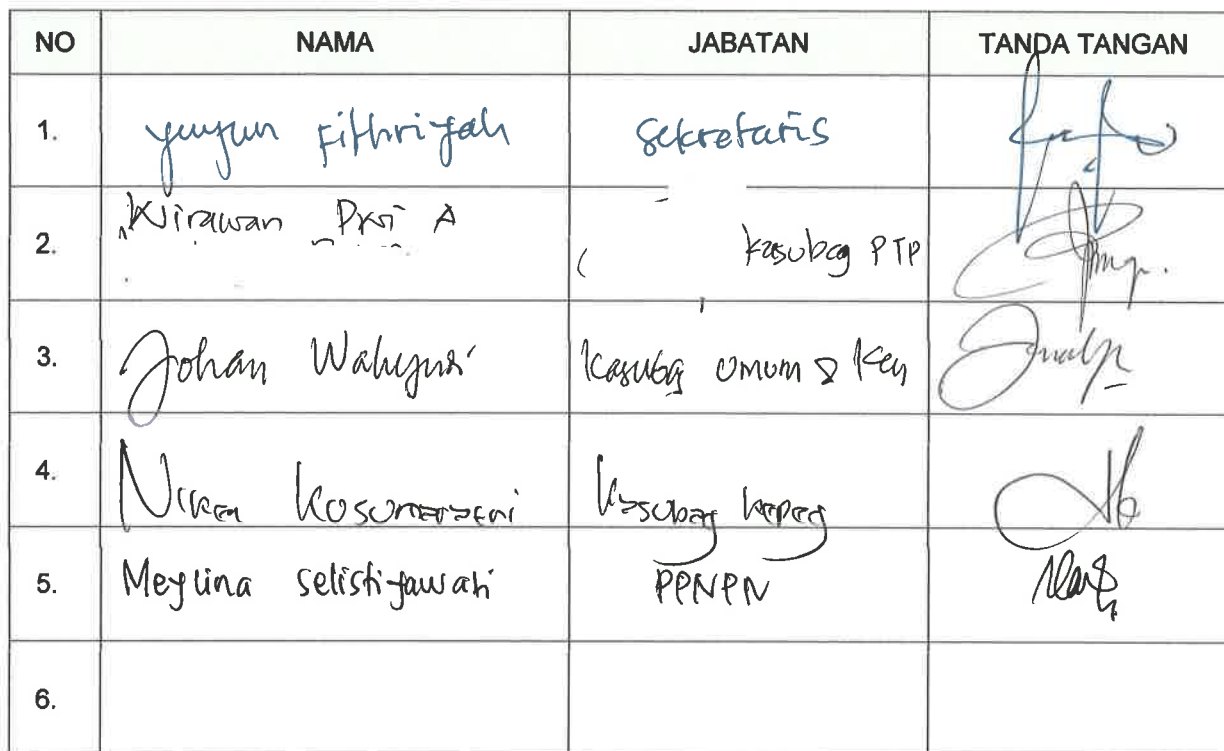 NO NAMA JABATAN TANDA TANGAN
1. yuyun Fithriyah Sekretaris
2. Wirawan A Kasubag PTP
3. Johan Wahyudi Kasubag Umum & Keu
4. Niken Kusumawardani Kasubag Kepeg
5. Meylina selistiyawati PPNPN
6.